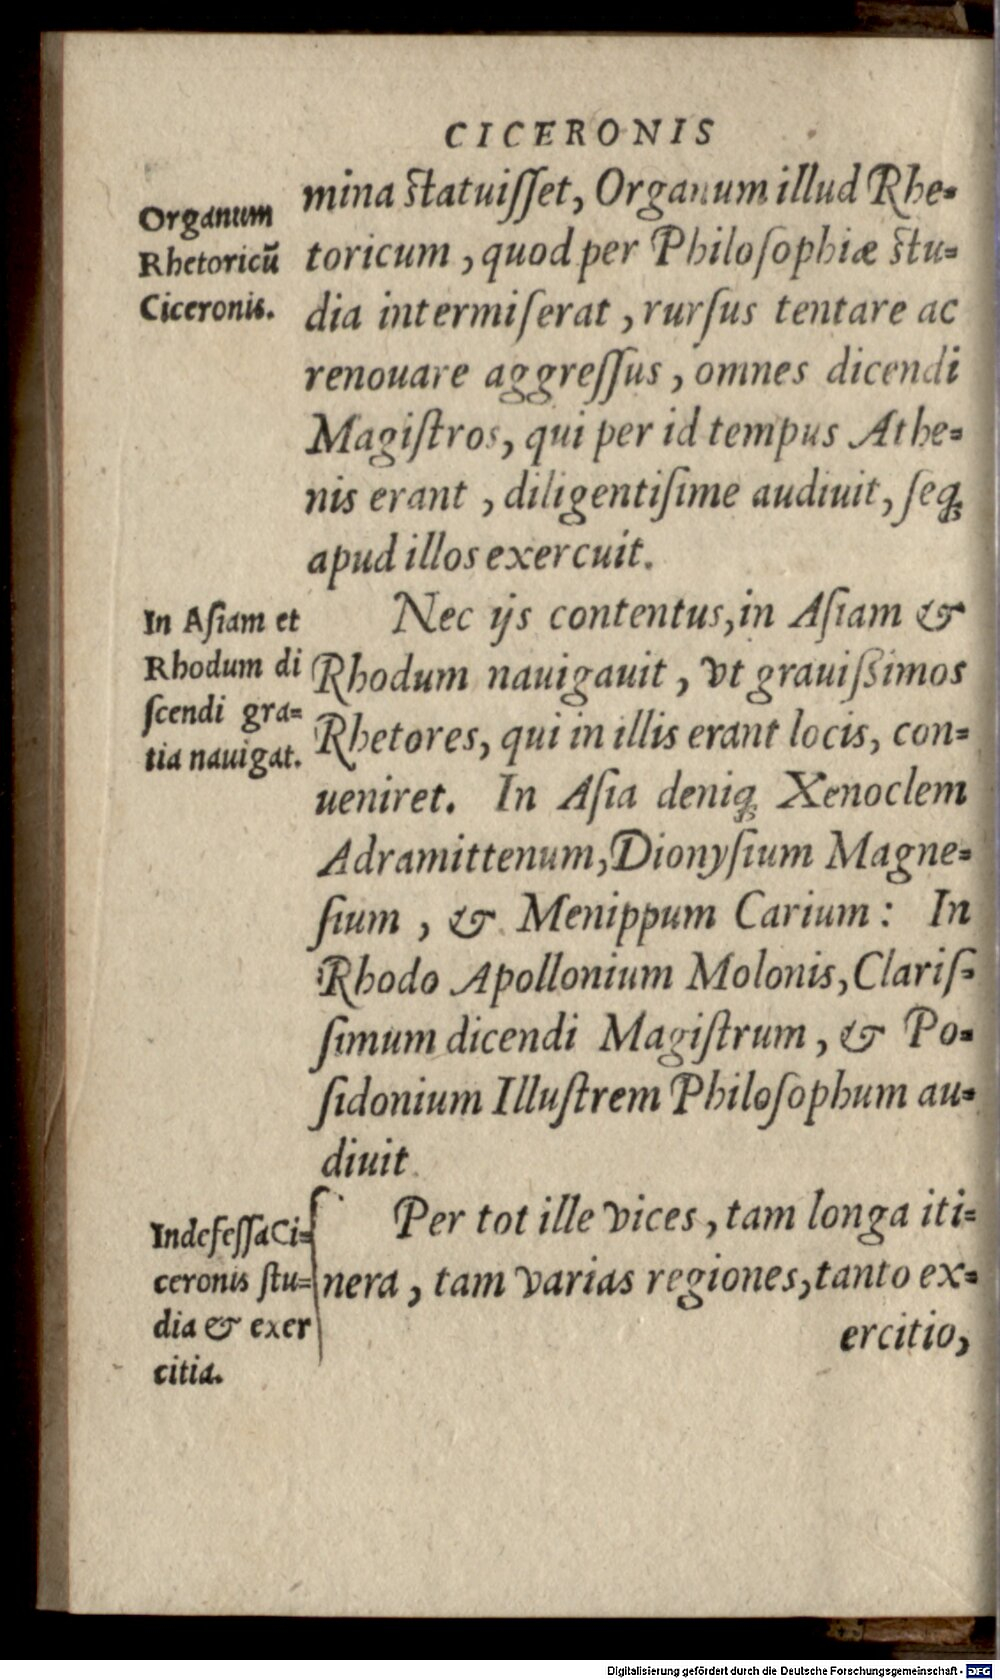 CICERONIS
Organum
Rhetoricũ
Ciceronis.
mina ſtatuiſſet, Organum illud Rhe-
toricum, quod per Philoſophiæ ſtu-
dia intermiſerat, rurſus tentare ac
renouare aggreſſus, omnes dicendi
Magiſtros, qui per id tempus Athe-
nis erant, diligentiſime audiuit, ſeq;
apud illos exercuit.
In Aſiam et
Rhodum di
ſcendi gra-
tia nauigat.
Nec ijs contentus, in Aſiam &
Rhodum nauigauit, vt grauiſsimos
Rhetores, qui in illis erant locis, con-
ueniret. In Aſia deniq; Xenoclem
Adramittenum, Dionyſium Magne-
ſium, & Menippum Carium: In
Rhodo Apollonium Molonis, Clariſ-
ſimum dicendi Magiſtrum, & Po-
ſidonium Illuſtrem Philoſophum au-
diuit.
Indefeſſa Ci-
ceronis ſtu-
dia & exer
citia.
Per tot ille vices, tam longa iti-
nera, tam varias regiones, tanto ex-
ercitio,
Digitalisierung gefördert durch die Deutsche Forschungsgemeinschaft - DFG